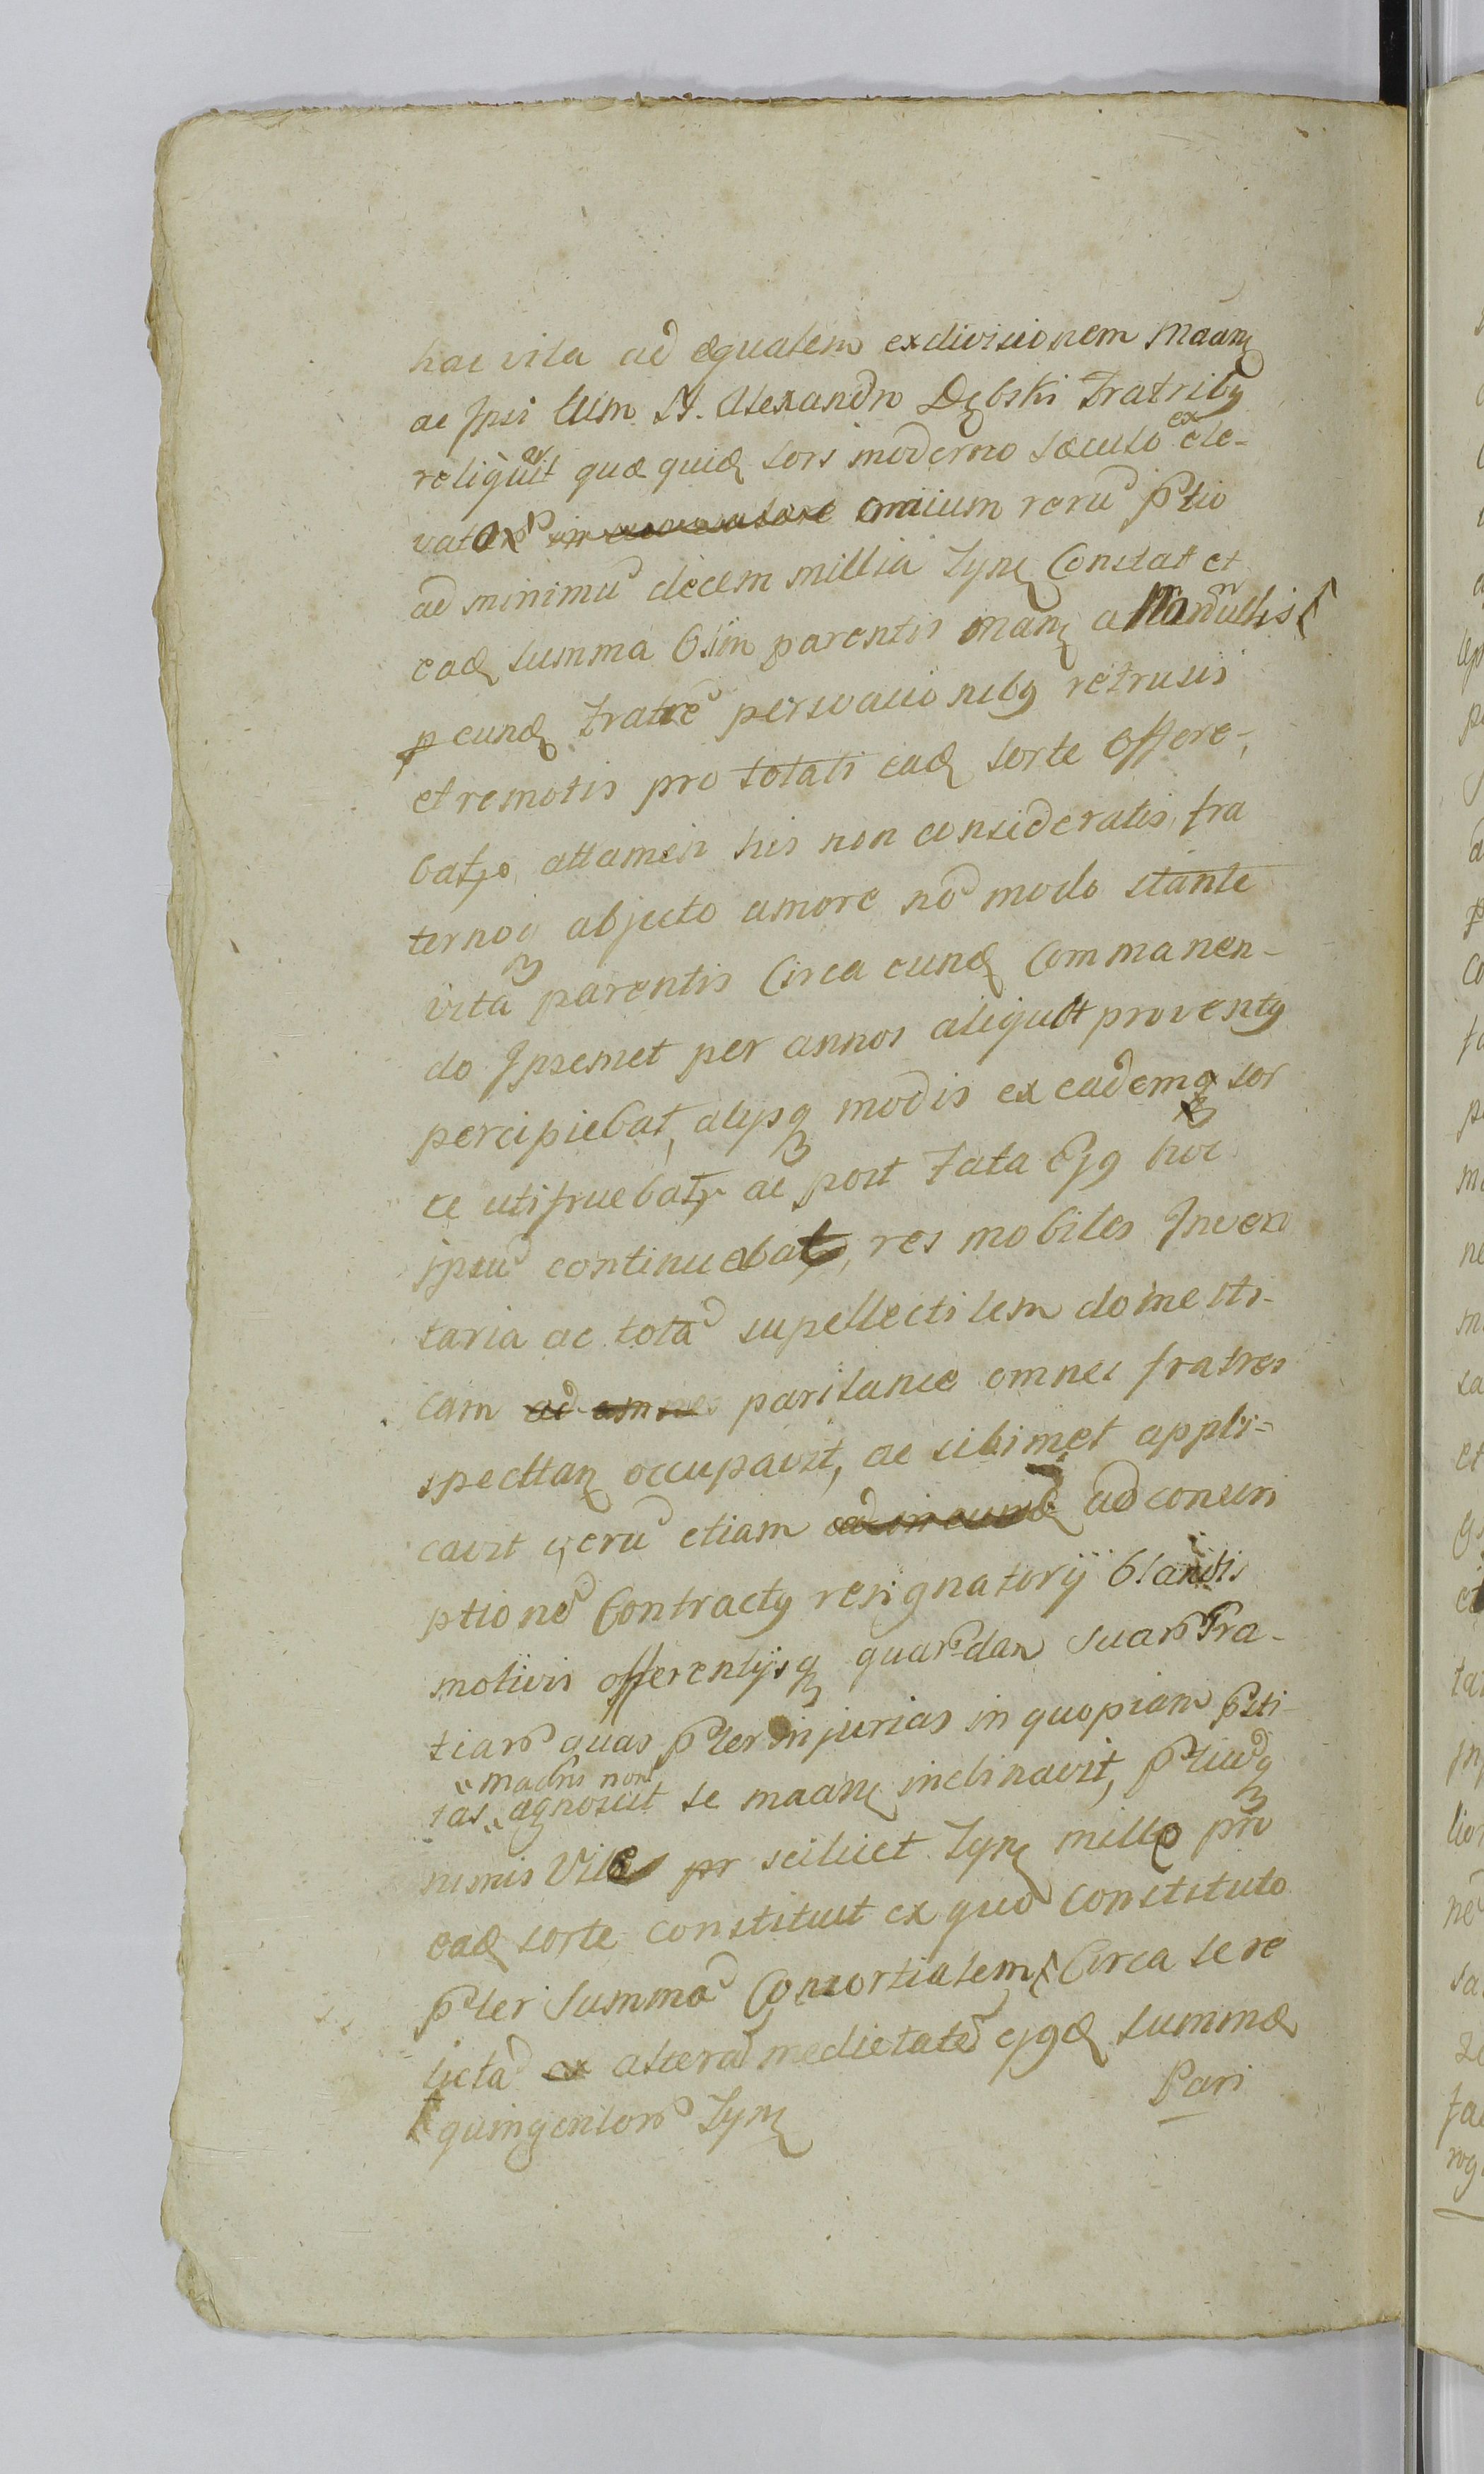 hac vita ad equalem exdivisionem Maanę
ac Ipsi Alexandro Dębski Fratribꝯ
reliquit quæ quidę sors moderno sæculo exele-
omnium rerū p̃tio
ad minimū decem millia Tynę Constat et
eadę summa Olim parentis manę a Nonnullis
p eundę Fratrē persvasionibꝯ retrusis
et remotis pro totali eadę sorte offere-
batꝛ, attamen his non consideratis, fra
terno abjecto amore nō modo stante
vita parentis Circa eundę Commanen-
do Ipsemet per annos aliquot proventꝯ
percipiebat, alijsqꝫ modis ex eademqꝫ sor
te utifruebatꝛ ac post Fata Ejꝯ hoc
ipsū continuebat, res mobiles Inven
taria ac totā supellectilem domesti-
cam ad omnes pari lance omnes fratres
spectan̄ occupavit, ac sibimet appli-
cavit verū etiam ad conscri
ptionē Contractꝯ resignatorij blandis
motivis offerentijsqꝫ quar̄dam suar̄ Gra-
tiar̄ quas p̃ter injurias in quopiam p̃sti-
tas magis non agnoscit se maanę inclinavit, p̃tiūqꝫ
nimis Vile pr scilicet Tynę mille pro
eadę sorte constituit ex quo Constituto
p̃ter Summā Consortialem Circa se re
lictā ex alterā medietatē ejꝯdę summæ
quingentor̄ Tynę
Pari